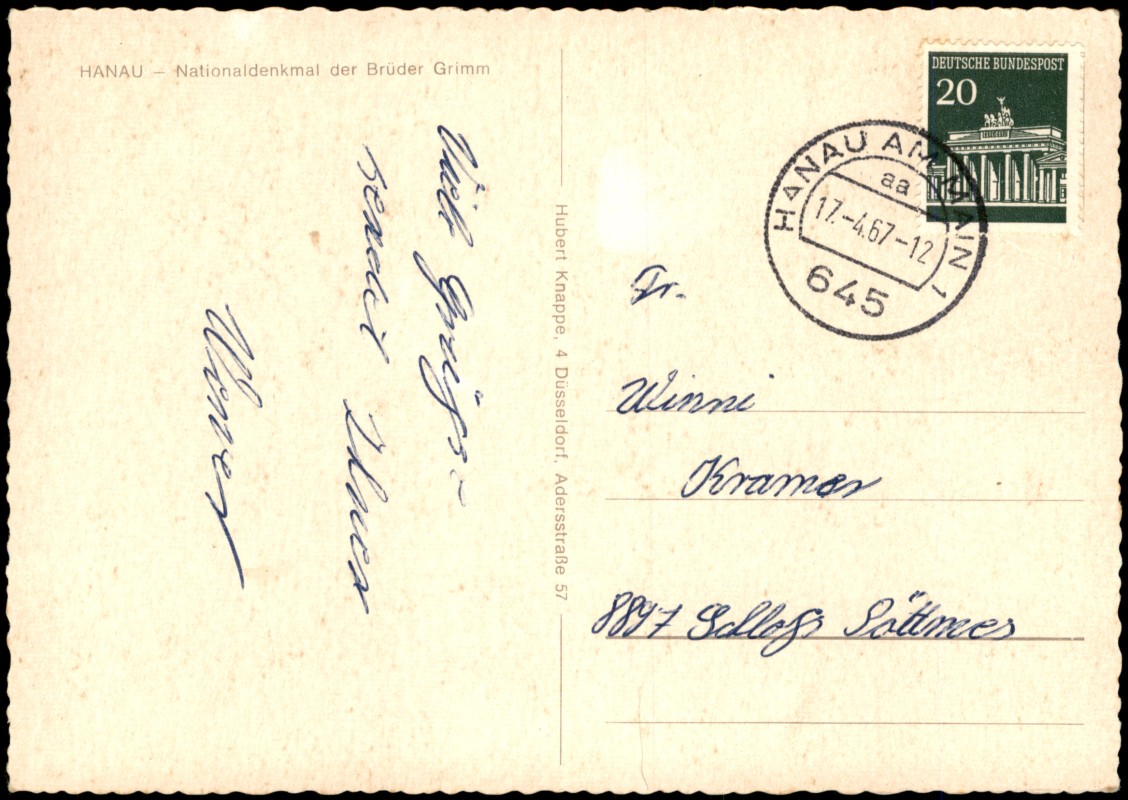 HANAU – Nationaldenkmal der Brüder Grimm
Viele Grüße
sendet Ihnen
Werner
Hubert Knappe, 4 Düsseldorf, Adersstraße 57
DEUTSCHE BUNDESPOST
20
HANAU AM MAIN 1
aa
17.-4.67-12
645
Fr.
Winni
Kramer
8897 Schloß Pöttmes